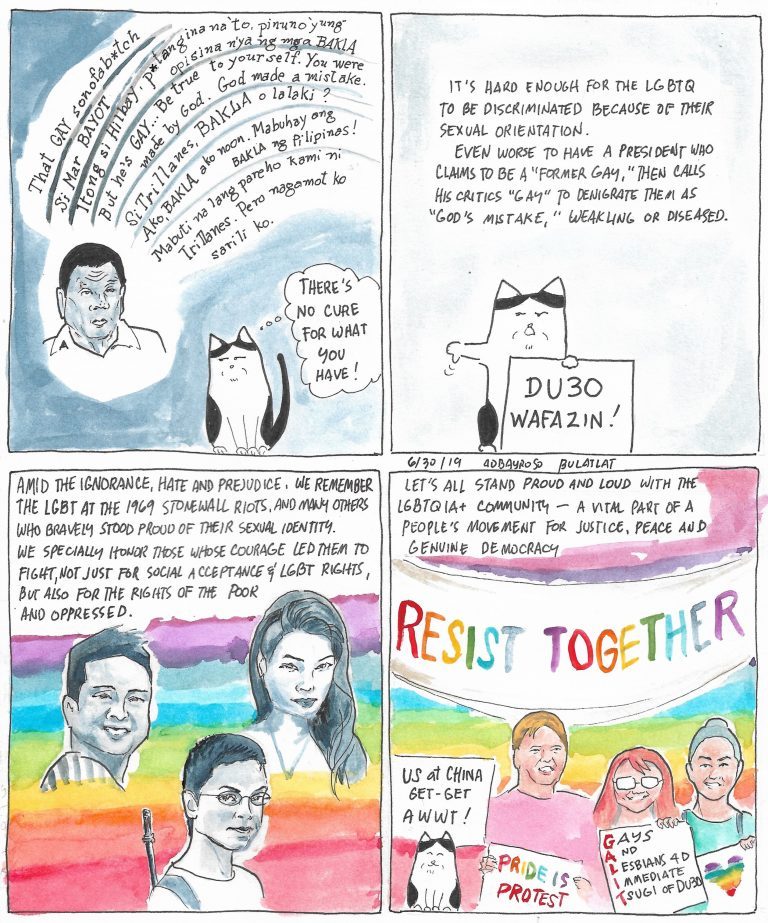 That GAY sonofab*tch
Si Mar BAYOT
Itong si Hilbay, p*tangina na'to, pinuno 'yung
opisina n'ya ng mga BAKLA
But he's GAY... Be true to yourself. You were
made by God. God made a mistake.
Si Trillanes, BAKLA o lalaki?
Ako, BAKLA ako noon. Mabuhay ang
BAKLA ng Pilipinas!
Mabuti na lang pareho kami ni
Trillanes. Pero nagamot ko
sarili ko.
THERE'S
NO CURE
FOR WHAT
YOU
HAVE!
IT'S HARD ENOUGH FOR THE LGBTQ
TO BE DISCRIMINATED BECAUSE OF THEIR
SEXUAL ORIENTATION.
EVEN WORSE TO HAVE A PRESIDENT WHO
CLAIMS TO BE A "FORMER GAY," THEN CALLS
HIS CRITICS "GAY" TO DENIGRATE THEM AS
"GOD'S MISTAKE," WEAKLING OR DISEASED.
DU30
WAFAZIN!
6/30/19 ADBAYROSO BULATLAT
AMID THE IGNORANCE, HATE AND PREJUDICE, WE REMEMBER
THE LGBT AT THE 1969 STONEWALL RIOTS, AND MANY OTHERS
WHO BRAVELY STOOD PROUD OF THEIR SEXUAL IDENTITY.
WE SPECIALLY HONOR THOSE WHOSE COURAGE LED THEM TO
FIGHT, NOT JUST FOR SOCIAL ACCEPTANCE & LGBT RIGHTS,
BUT ALSO FOR THE RIGHTS OF THE POOR
AND OPPRESSED.
LET'S ALL STAND PROUD AND LOUD WITH THE
LGBTQIA+ COMMUNITY — A VITAL PART OF A
PEOPLE'S MOVEMENT FOR JUSTICE, PEACE AND
GENUINE DEMOCRACY
RESIST TOGETHER
US at CHINA
GET-GET
AWW!
PRIDE IS
PROTEST
GAYS
AND
LESBIANS 4 D
IMMEDIATE
TSUGI OF DU30